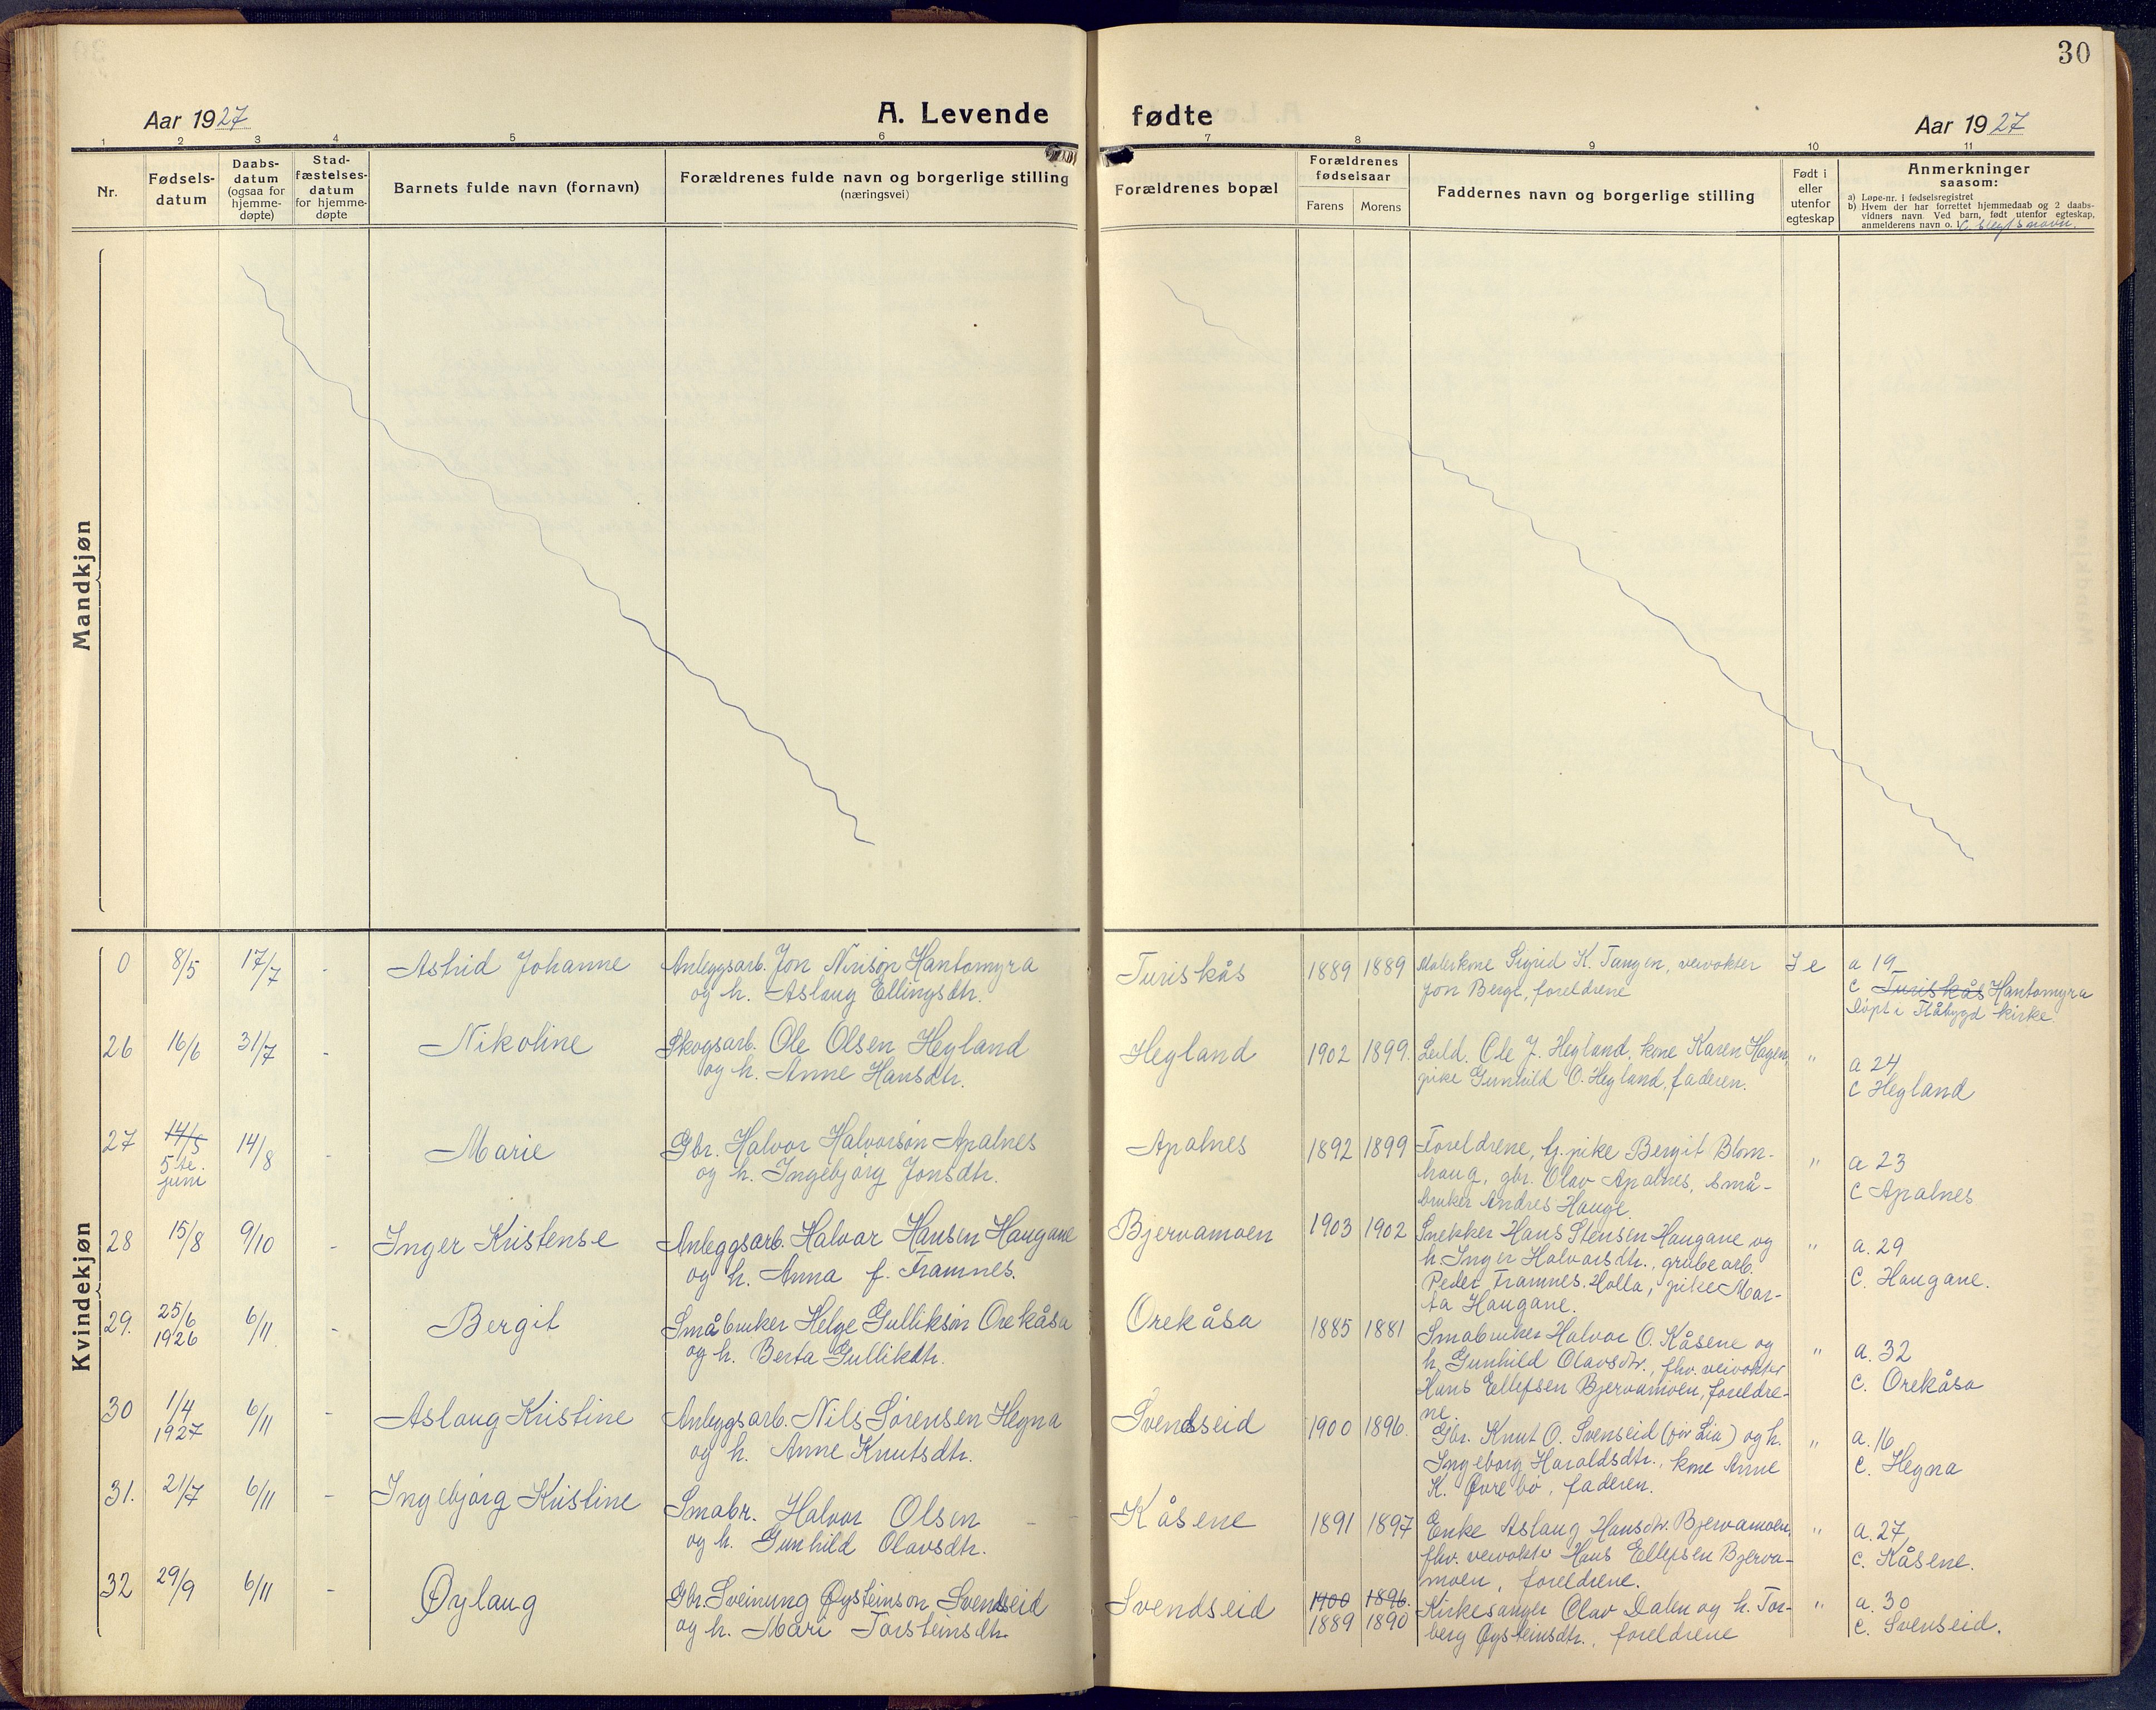 30
Aar 1927
A. Levende fødte
Aar 1927
1 2 3 4 5 6 7 8 9 10 11
Nr.
Fødsels-
datum
Daabs-
datum
(ogsaa for
hjemme-
døpte)
Stad-
fæstelses-
datum
for hjemme-
døpte
Barnets fulde navn (fornavn)
Forældrenes fulde navn og borgerlige stilling
(næringsvei)
Forældrenes bopæl
Forældrenes
fødselsaar
Farens Morens
Faddernes navn og borgerlige stilling
Født i
eller
utenfor
egteskap
Anmerkninger
saasom:
a) Løpe-nr. i fødselsregistret
b) Hvem der har forrettet hjemmedaab og 2 daabs-
vidners navn. Ved barn, født utenfor egteskap,
anmelderens navn o. l. C. Slegtsnavn.
Mandkjøn
Kvindekjøn
0 8/5 17/7 - Astrid Johanne
Anleggsarb. Jon Nirisøn Hantomyra
og h. Aslaug Ellingsdtr.
Turiskås 1889 1889
Malerkone Sigrid K. Tangen, veivokter
Jon Berge, foreldrene
I e
a 19
c Turiskås Hantomyra
døpt i Flåbygd kirke.
26 16/6 31/7 - Nikoline
Skogsarb. Ole Olsen Hegland
og h. Anne Hansdtr.
Hegland 1902 1899.
Leild. Ole J. Hegland, kone Karen Hagen,
pike Gunhild O. Hegland, faderen.
"
a 24
c Hegland
27 14/5
5te.
juni
14/8 - Marie
Gbr. Halvor Halvorsøn Apalnes
og h. Ingebjørg Jonsdtr.
Apalnes 1892 1899
Foreldrene, tj. pike Bergit Blom-
haug, gbr. Olav Apalnes, små-
bruker Andres Hauge.
"
a 23
c Apalnes
28 15/8 9/10 - Inger Kristense
Anleggsarb. Halvor Hansen Haugane
og h. Anna f. Framnes.
Bjervamoen 1903 1902
Snekker Hans Stensen Haugane og
h. Inger Halvorsdtr., grubearb.
Peder Framnes, Holla, pike Mar-
ta Haugane.
"
a. 29
C. Haugane.
29. 25/6
1926
6/11 - Bergit
Småbruker Helge Gulliksøn Orekåsa
og h. Berta Gullikdtr.
Orekåsa 1885 1881
Småbruker Halvor O. Kåsene og
h. Gunhild Olavsdtr., fhv. veivokter
Hans Ellefsen Bjervamoen, foreldre-
ne.
"
a. 32
c. Orekåsa
30 1/4
1927
6/11 - Aslaug Kristine
Anleggsarb. Nils Sørensen Hegna
og h. Anne Knutsdtr.
Svendseid 1900 1896.
Gbr. Knut O. Svenseid (før Lia) og h.
Ingeborg Haraldsdtr., kone Anne
K. Øvrebø, faderen.
"
a. 16
c. Hegna
31. 21/7 6/11 - Ingebjørg Kristine
Småbr. Halvor Olsen - -
og h. Gunhild Olavsdtr.
Kåsene 1891 1897
Enke Aslaug Hansdtr. Bjervamoen,
fhv. veivokter Hans Ellefsen Bjerva-
moen, foreldrene.
"
a. 27,
c. Kåsene.
32 29/9 6/11 - Øylaug
Gbr. Sveinung Øysteinson Svendseid
og h. Mari Torsteinsdtr.
Svendseid 1900 1896.
1889 1890
Kirkesanger Olav Dalen og h. Tor-
berg Øysteinsdtr., foreldrene
"
a. 30
c. Svenseid.